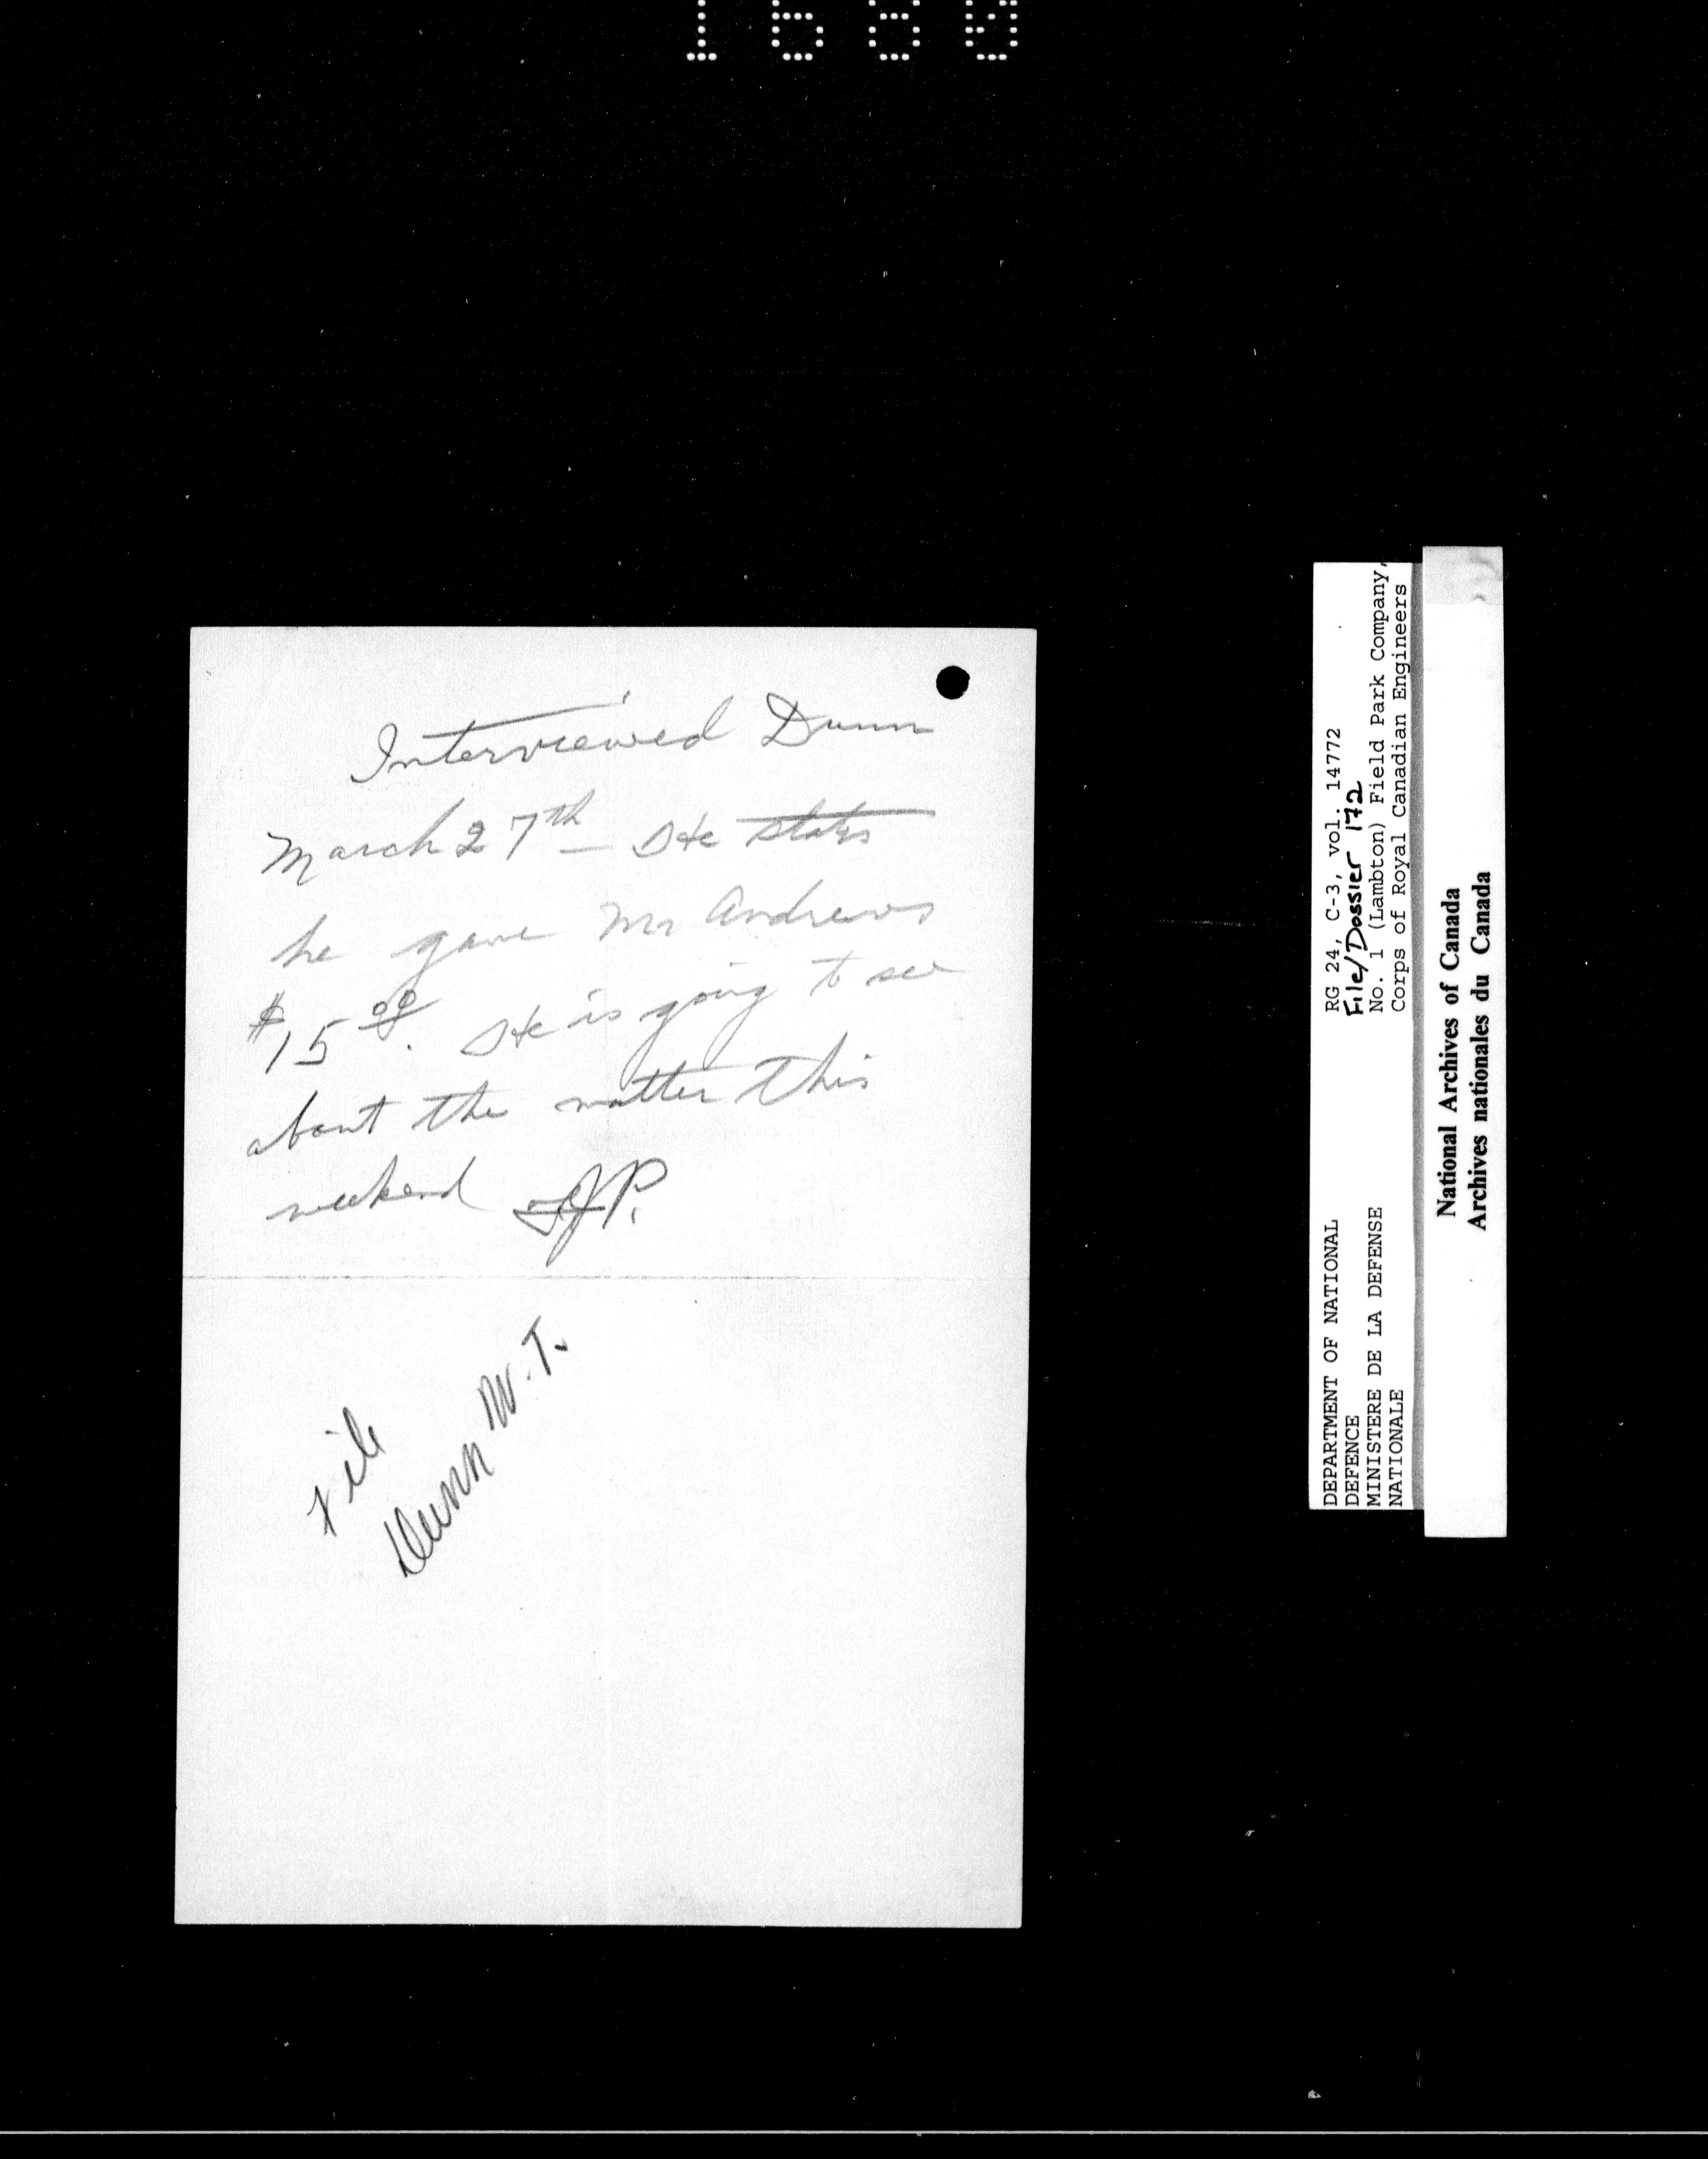 Interviewed Dunn
March 27th – He states
he gave Mr Andrews
$15.00. He is going to see
about the matter this
weekend P.
File
Dunn W.T.
RG 24, C-3, vol. 14772
File/Dossier 172
No. 1 (Lambton) Field Park Company,
Corps of Royal Canadian Engineers
DEPARTMENT OF NATIONAL
DEFENCE
MINISTERE DE LA DEFENSE
NATIONALE
National Archives of Canada
Archives nationales du Canada